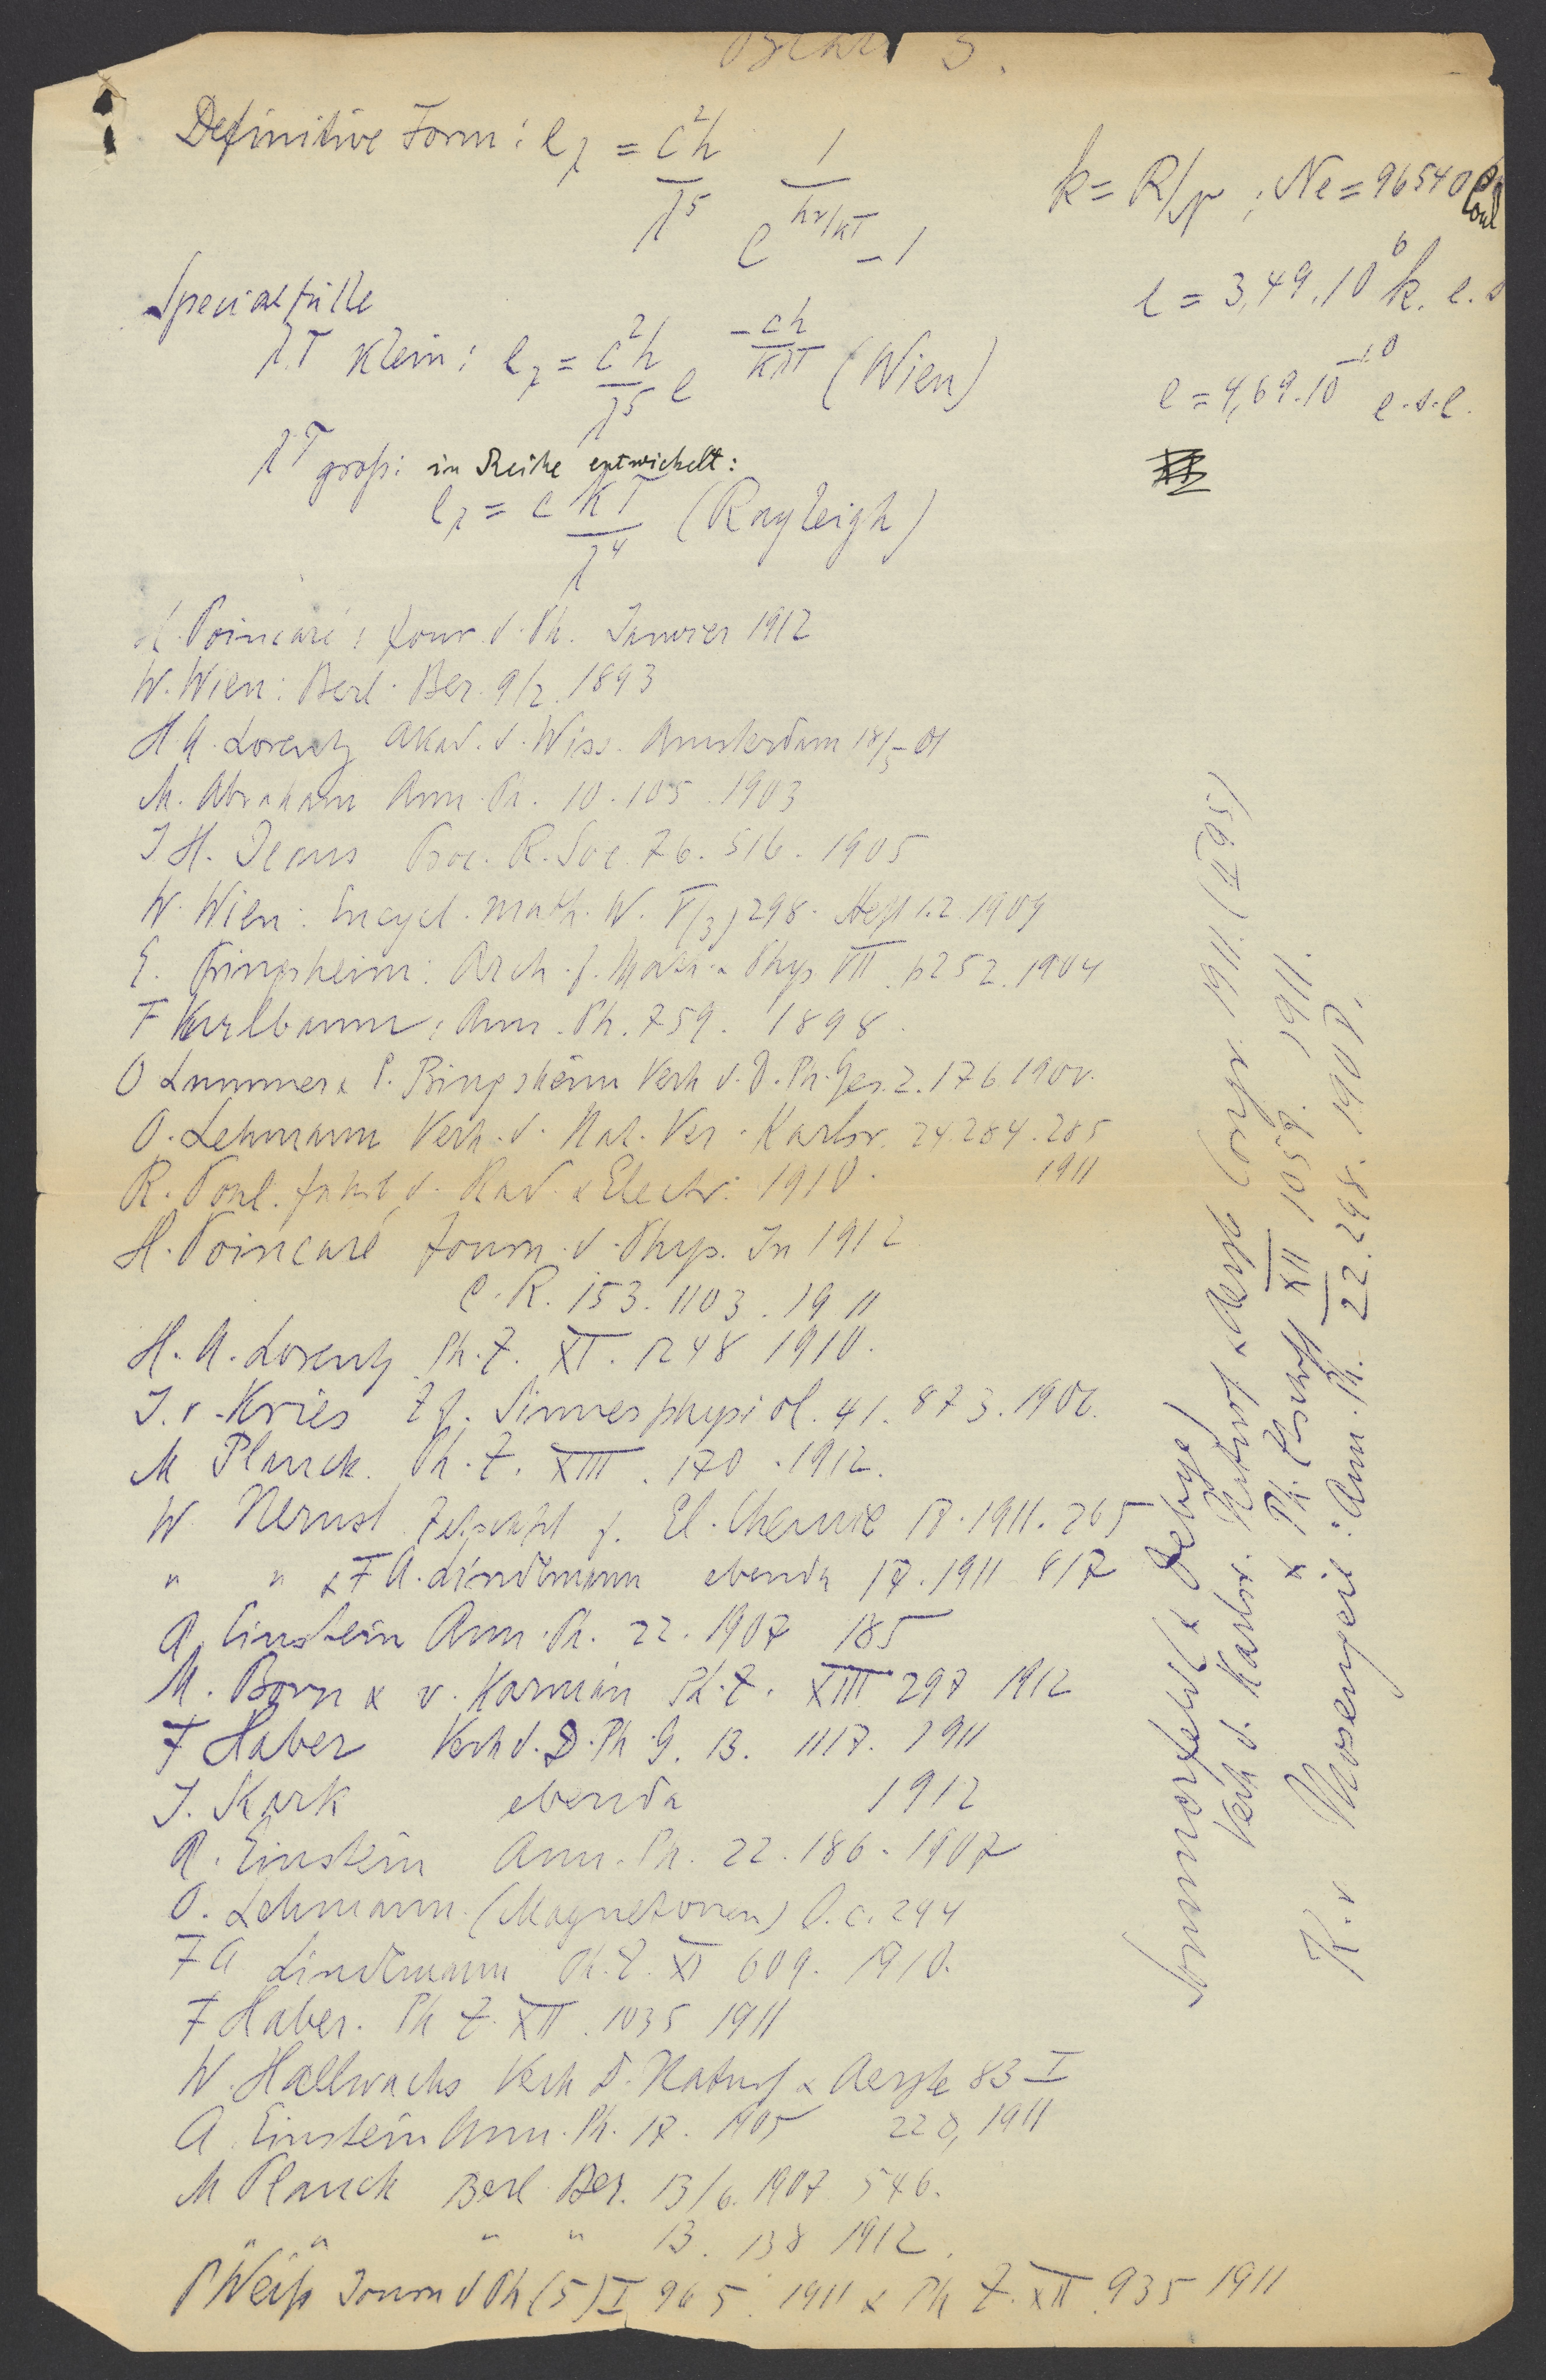 Definitive Form: e_λ = c²h/λ⁵ 1/(e^{hν/kT} – 1)
k = R/N ; Ne = 96540 Coul
e = 3,49.10⁶ k. e.s
e = 4,69.10⁻¹⁰ e.s.e.
Specialfälle
λT klein: e_λ = c²h/λ⁵ e^{–ch/kλT} (Wien)
λT groß: in Reihe entwickelt:
e_λ = c kT/λ⁴ (Rayleigh)
H. Poincaré: Jour. d. Ph. Janvier 1912
W. Wien: Berl. Ber. 9/2. 1893
H A. Lorentz Akad. d. Wiss. Amsterdam 18/5 01
M. Abraham Ann. Ph. 10. 105. 1903
J H. Jeans Proc. R. Soc. 76. 516. 1905
W. Wien: Encycl. math. W. V(3) 298. Heft 1.2. 1909
E. Pringsheim: Arch. f. Math. & Phys VII. p252. 1904
F Kurlbaum: Ann. Ph. 759. 1898.
O Lummer & P. Pringsheim Verh d. D. Ph. Ges. 2. 176 1900.
O. Lehmann Verh. d. Nat. Ver. Karlsr. 24. 284. 285
1911
R. Pohl. Jahrb d. Rad. & Electr. 1910.
H. Poincaré Journ. d. Phys. Jn 1912
C. R. 153. 1103. 1911
H. A. Lorentz Ph. Z. XI. 1248 1910.
J. v. Kries Z f. Sinnesphysiol. 41. 373. 1906.
M Planck. Ph. Z. XIII. 170. 1912.
W Nernst Zeitschft f. El. Chemie 17. 1911. 265
" " & F A. Lindemann ebenda 17. 1911 817
A. Einstein Ann. Ph. 22. 1907 185
M. Born & v. Karmán Ph. Z. XIII 297 1912
F Haber Verh d. D. Ph. G. 13. 1117. 1911
J. Stark ebenda 1912
A. Einstein Ann. Ph. 22. 186. 1907
O. Lehmann (Magnetonen) l. c. 294
F A Lindemann Ph. Z. XI 609. 1910.
F Haber. Ph Z. XII. 1035 1911
W. Hallwachs Verh D. Naturf & Aerzte 83 I
220, 1911
A. Einstein Ann. Ph. 17. 1905
M Planck Berl Ber. 13/6. 1907 546.
" " " " 13. 138 1912.
P Weiß Journ d Ph (5) I 965. 1911 & Ph Z. XII. 935 1911
Sommerfeld (& Debye)
Verh d. Karlsr. Naturf & Aerzte Congr. 1911. (II 95)
& Ph. Ztschrft XII 1059. 1911.
K. v Mosengeil: Ann. Ph. 22. 298. 1900.